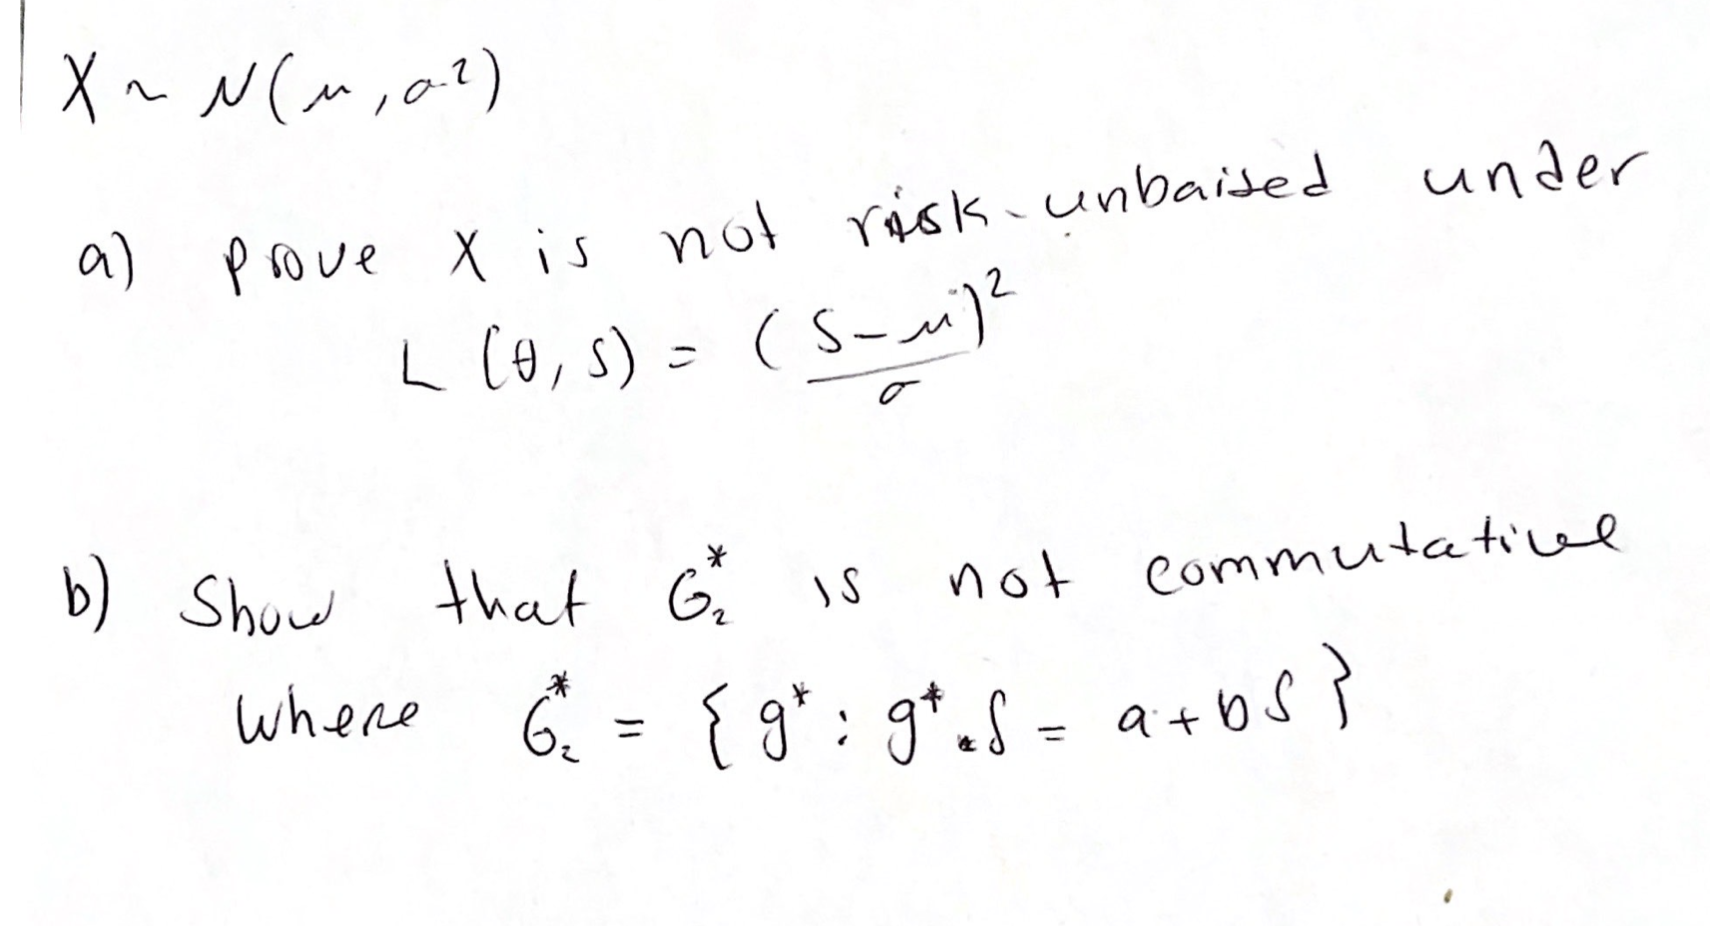 X ~ N(μ, σ²)
a) prove X is not risk-unbaised under
L(θ, S) = (S-μ)² / σ
b) Show that G₂* is not commutative
where G₂* = { g* : g*.S = a + bS }